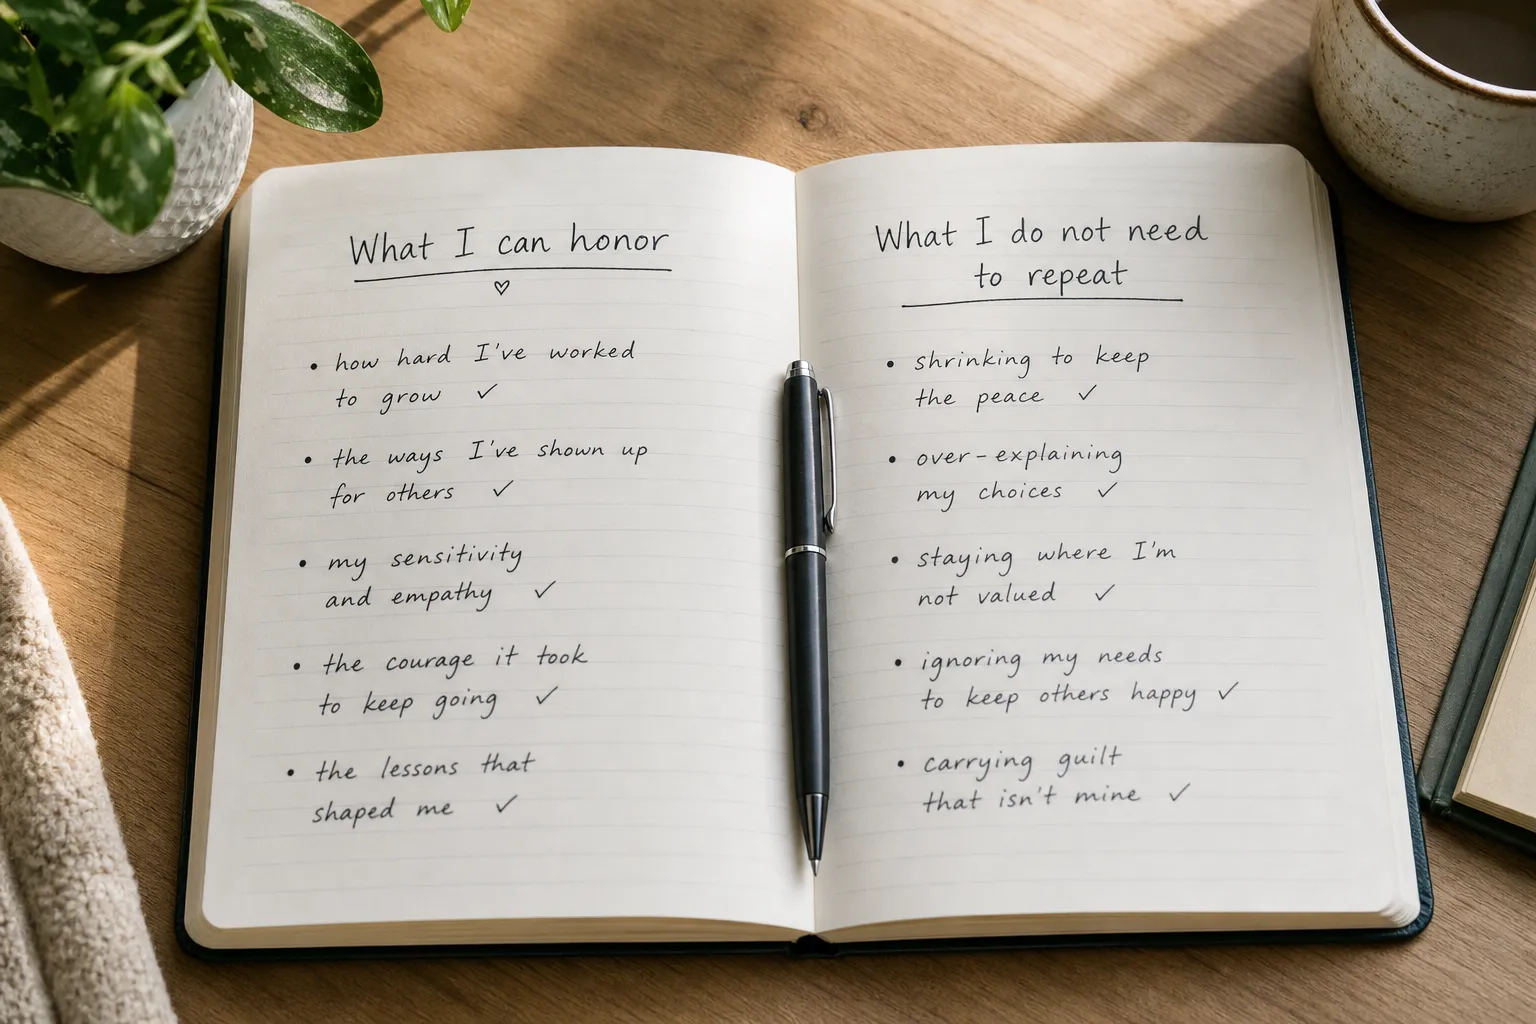 What I can honor
♡
• how hard I've worked
to grow ✓
• the ways I've shown up
for others ✓
• my sensitivity
and empathy ✓
• the courage it took
to keep going ✓
• the lessons that
shaped me ✓
What I do not need
to repeat
• shrinking to keep
the peace ✓
• over-explaining
my choices ✓
• staying where I'm
not valued ✓
• ignoring my needs
to keep others happy ✓
• carrying guilt
that isn't mine ✓